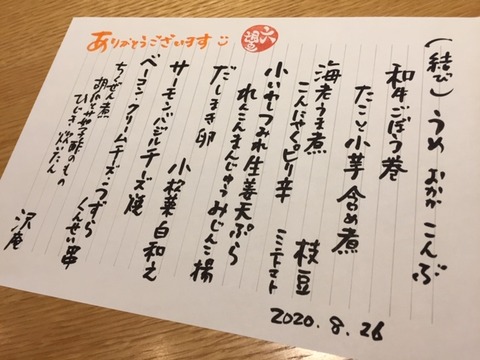 ありがとうございます
(結び) うめ おかか こんぶ
和牛ごぼう巻
たこと小芋 含め煮
海老うま煮
こんにゃくピリ辛 枝豆
ミニトマト
小いわしつみれ生姜天ぷら
れんこんまんじゅうみじんこ揚
だしまき卵 小松菜白和え
サーモンバジルチーズ焼
ベーコンクリームチーズ・うずらくんせい串
ちくぜん煮
胡瓜とザーサイ酢のもの
ひじき炊いたん
沢庵
2020.8.26